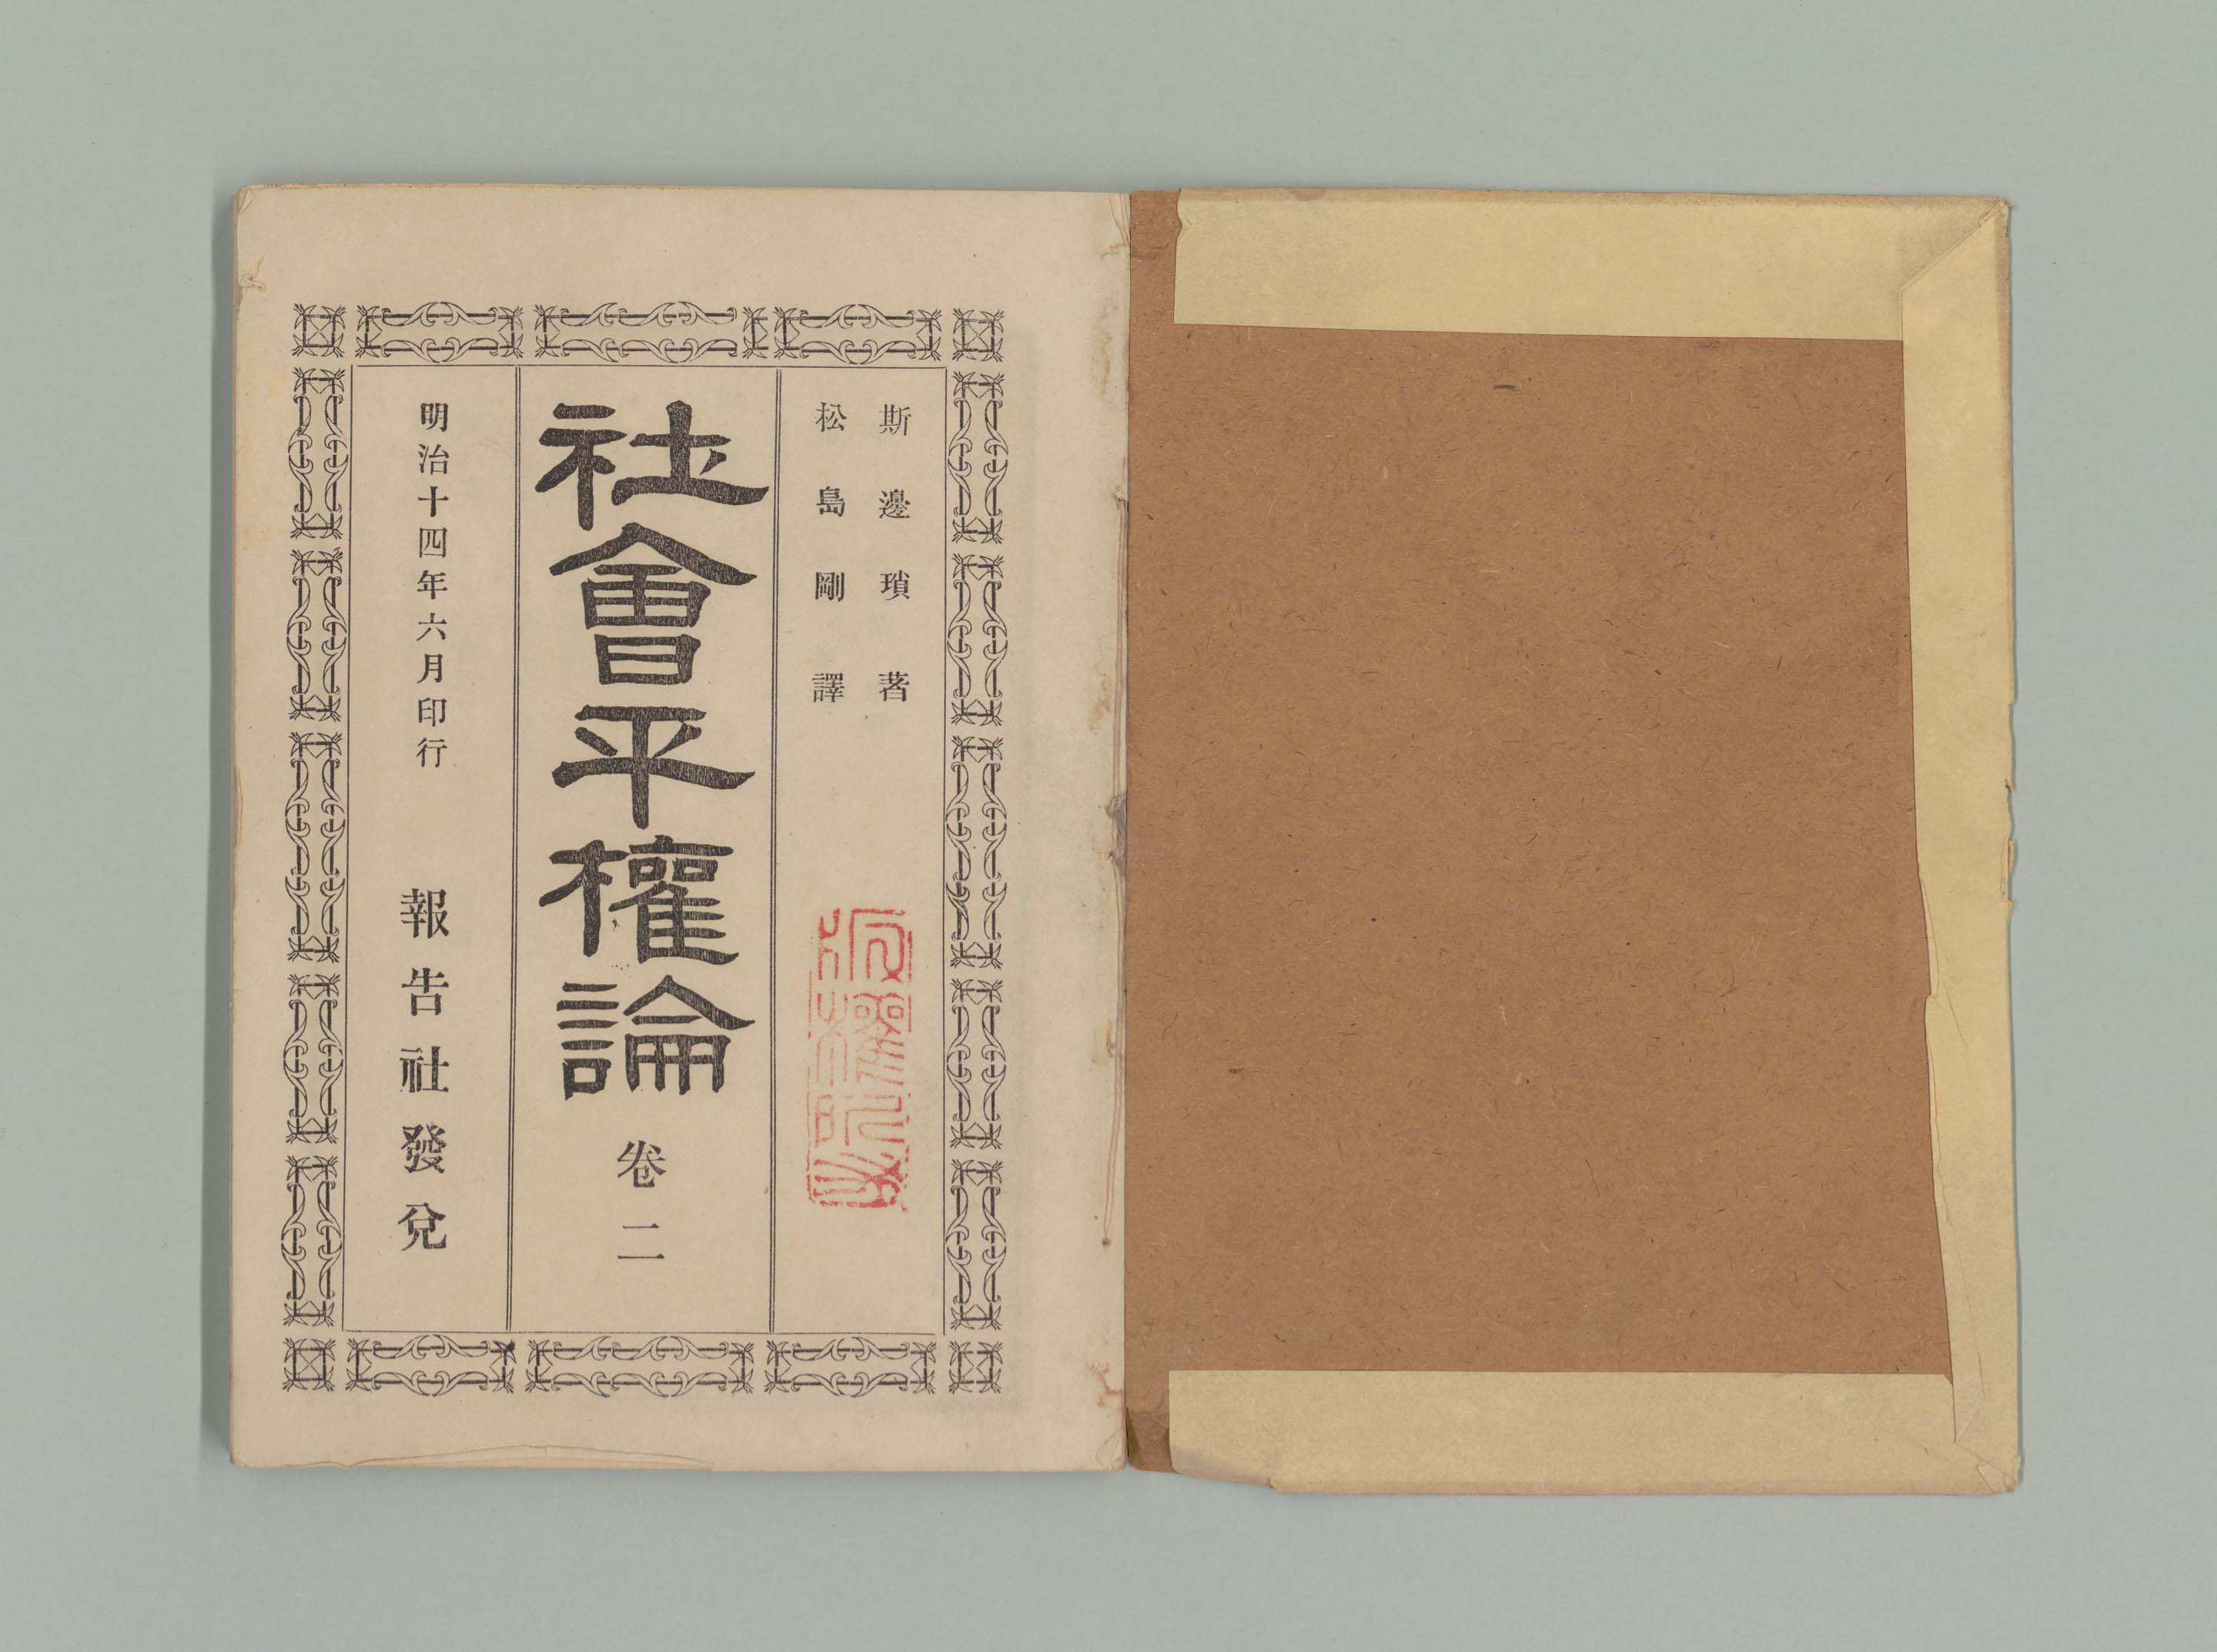 斯邊瑣著
松島剛譯
社會平權論
卷二
明治十四年六月印行
報告社發兌